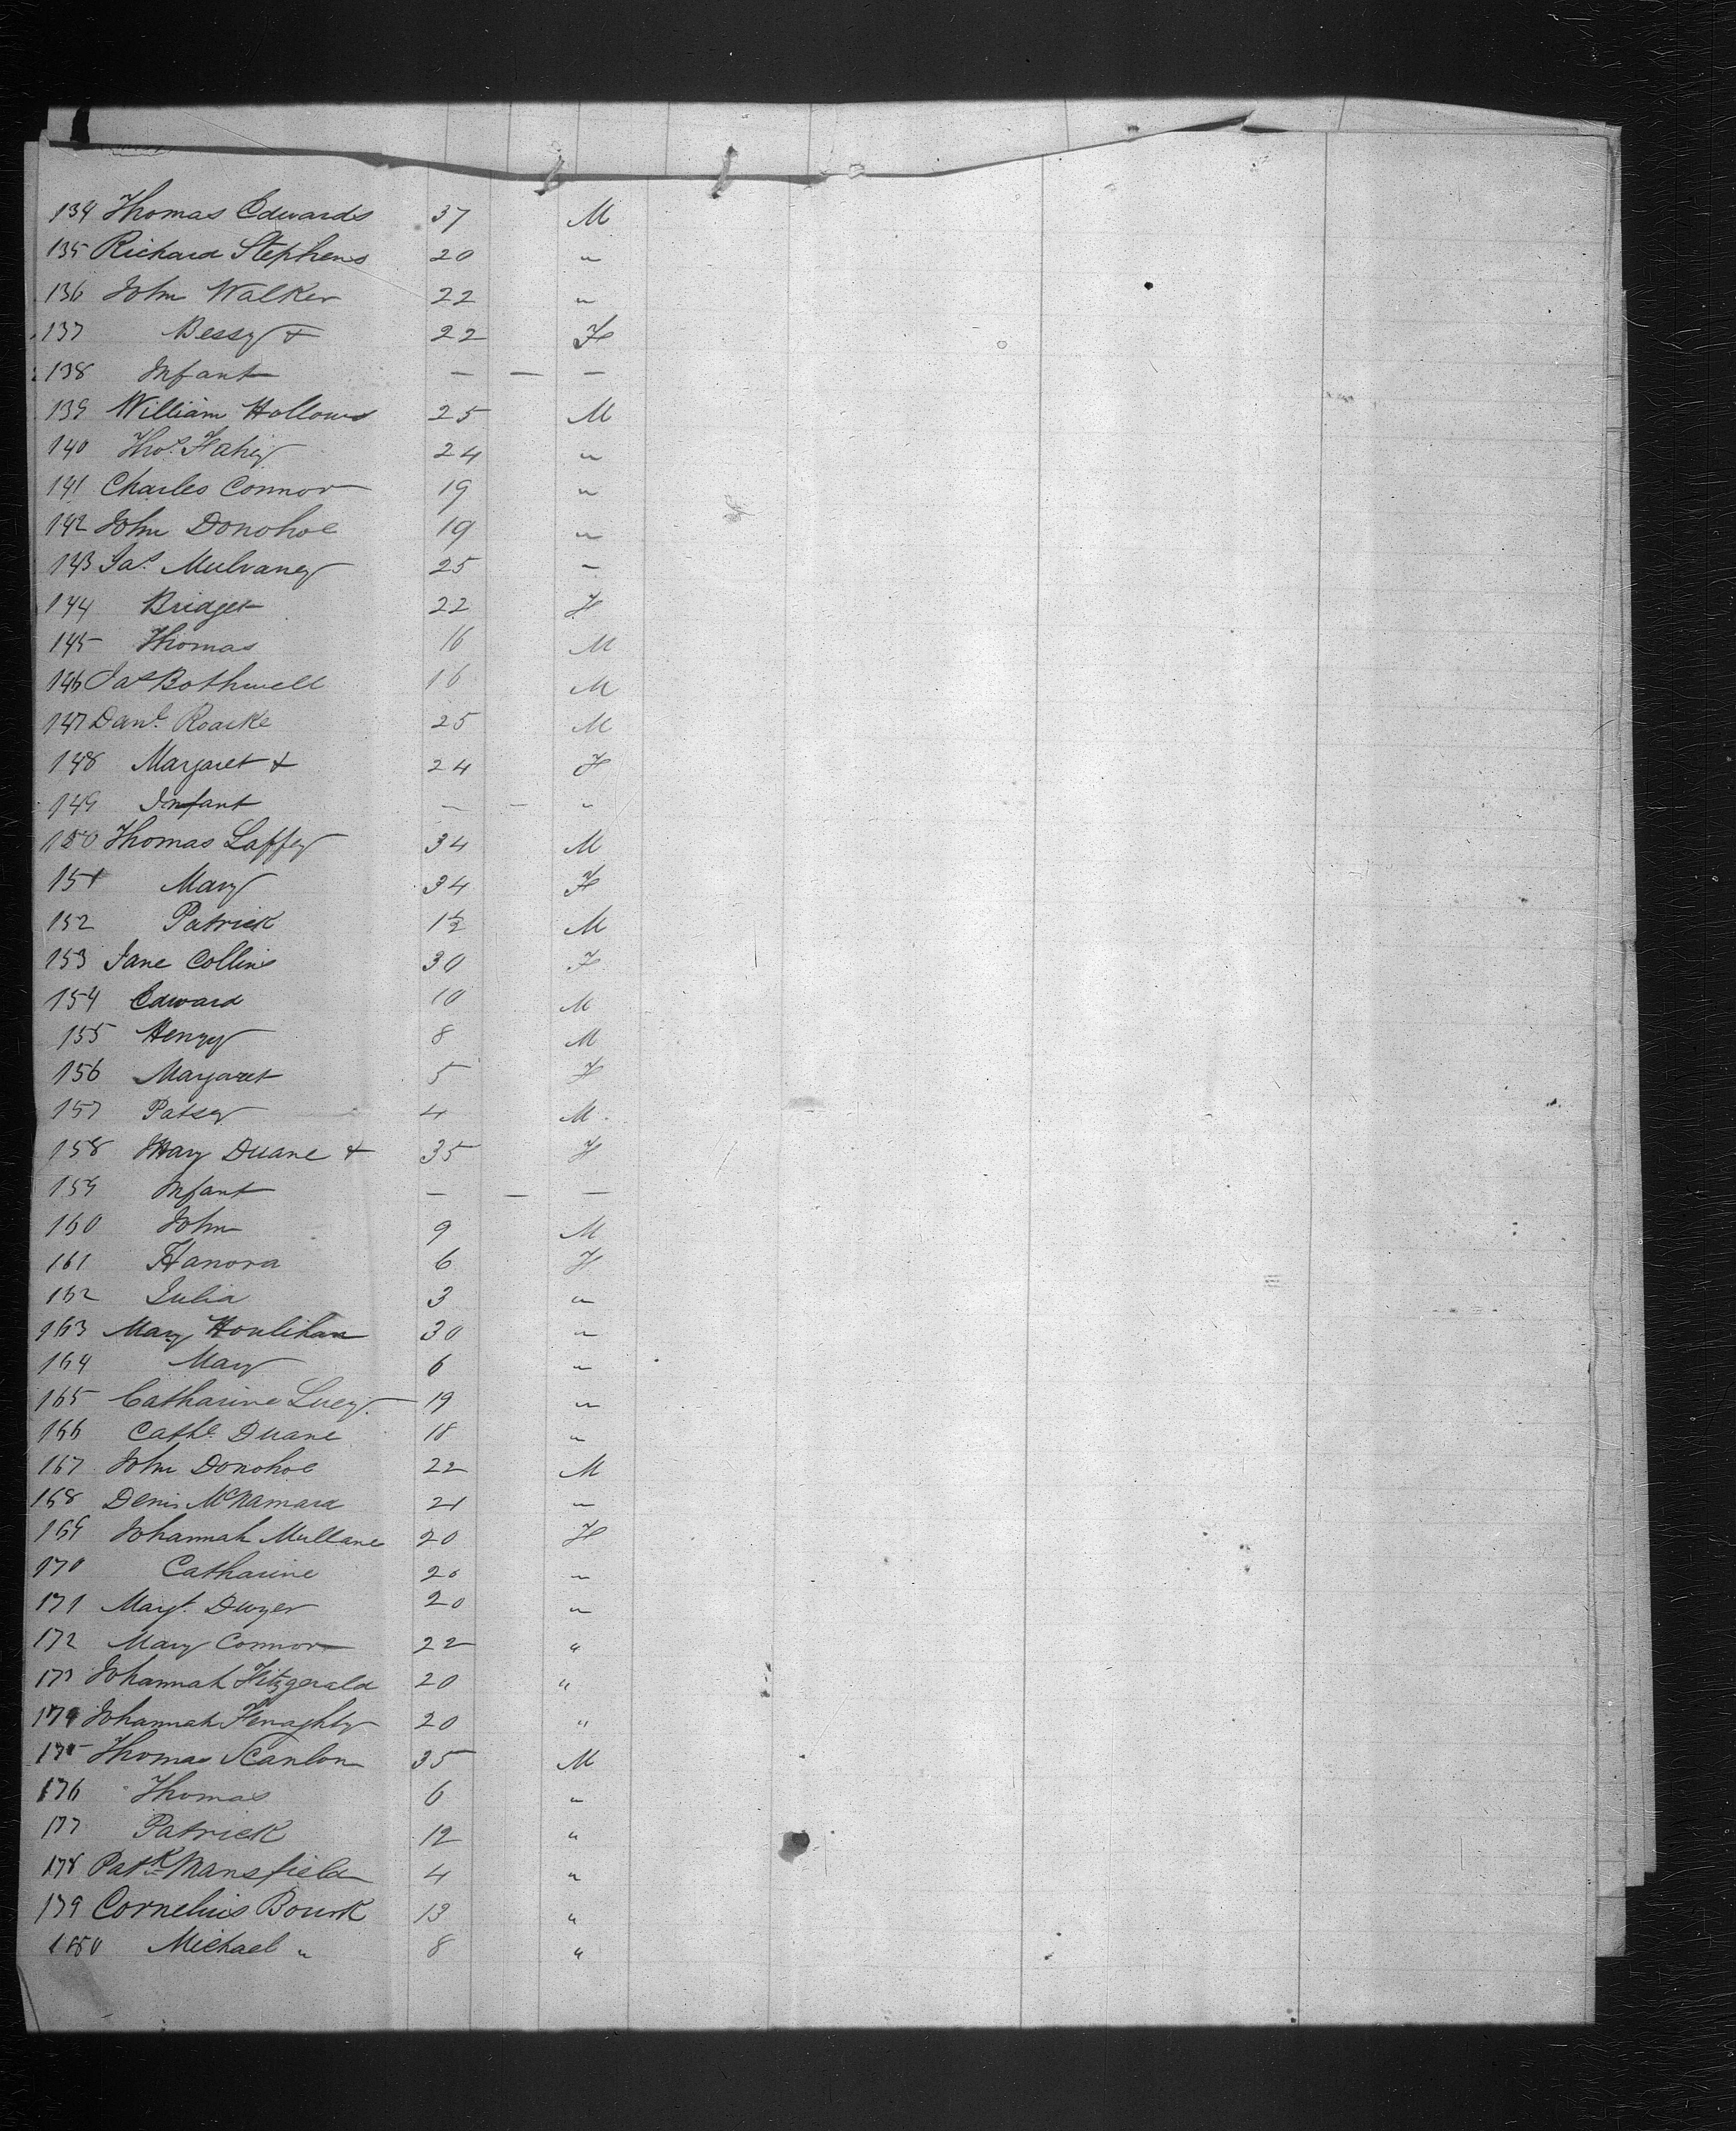 134 Thomas Edwards 37 M
135 Richard Stephens 20 "
136 John Walker 22 "
137 Bessy + 22 F
138 Infant — — —
139 William Hollows 25 M
140 Thos. Fahey 24 "
141 Charles Connor 19 "
142 John Donohoe 19 "
143 Jas. Mulvaney 25 "
144 Bridget 22 F
145 Thomas 16 M
146 Jas Bothwell 16 M
147 Danl. Roarke 25 M
148 Margaret + 24 F
149 Infant — — "
150 Thomas Laffey 34 M
151 Mary 34 F
152 Patrick 1½ M
153 Jane Collins 30 F
154 Edward 10 M
155 Henry 8 M
156 Margaret 5 F
157 Patsey 4 M
158 Mary Duane + 35 F
159 Infant — — —
160 John 9 M
161 Hanora 6 F
162 Julia 3 "
163 Mary Houlihan 30 "
164 Mary 6 "
165 Catharine Lucy 19 "
166 Cathe. Duane 18 "
167 John Donohoe 22 M
168 Denis McNamara 21 "
169 Johannah Mullane 20 F
170 Catharine 20 "
171 Margt. Dwyer 20 "
172 Mary Connor 22 "
173 Johannah Fitzgerald 20 "
174 Johannah Fenaghty 20 "
175 Thomas Scanlon 35 M
176 Thomas 6 "
177 Patrick 12 "
178 Patk Mansfield 4 "
179 Cornelius Bourk 13 "
180 Michael " 8 "